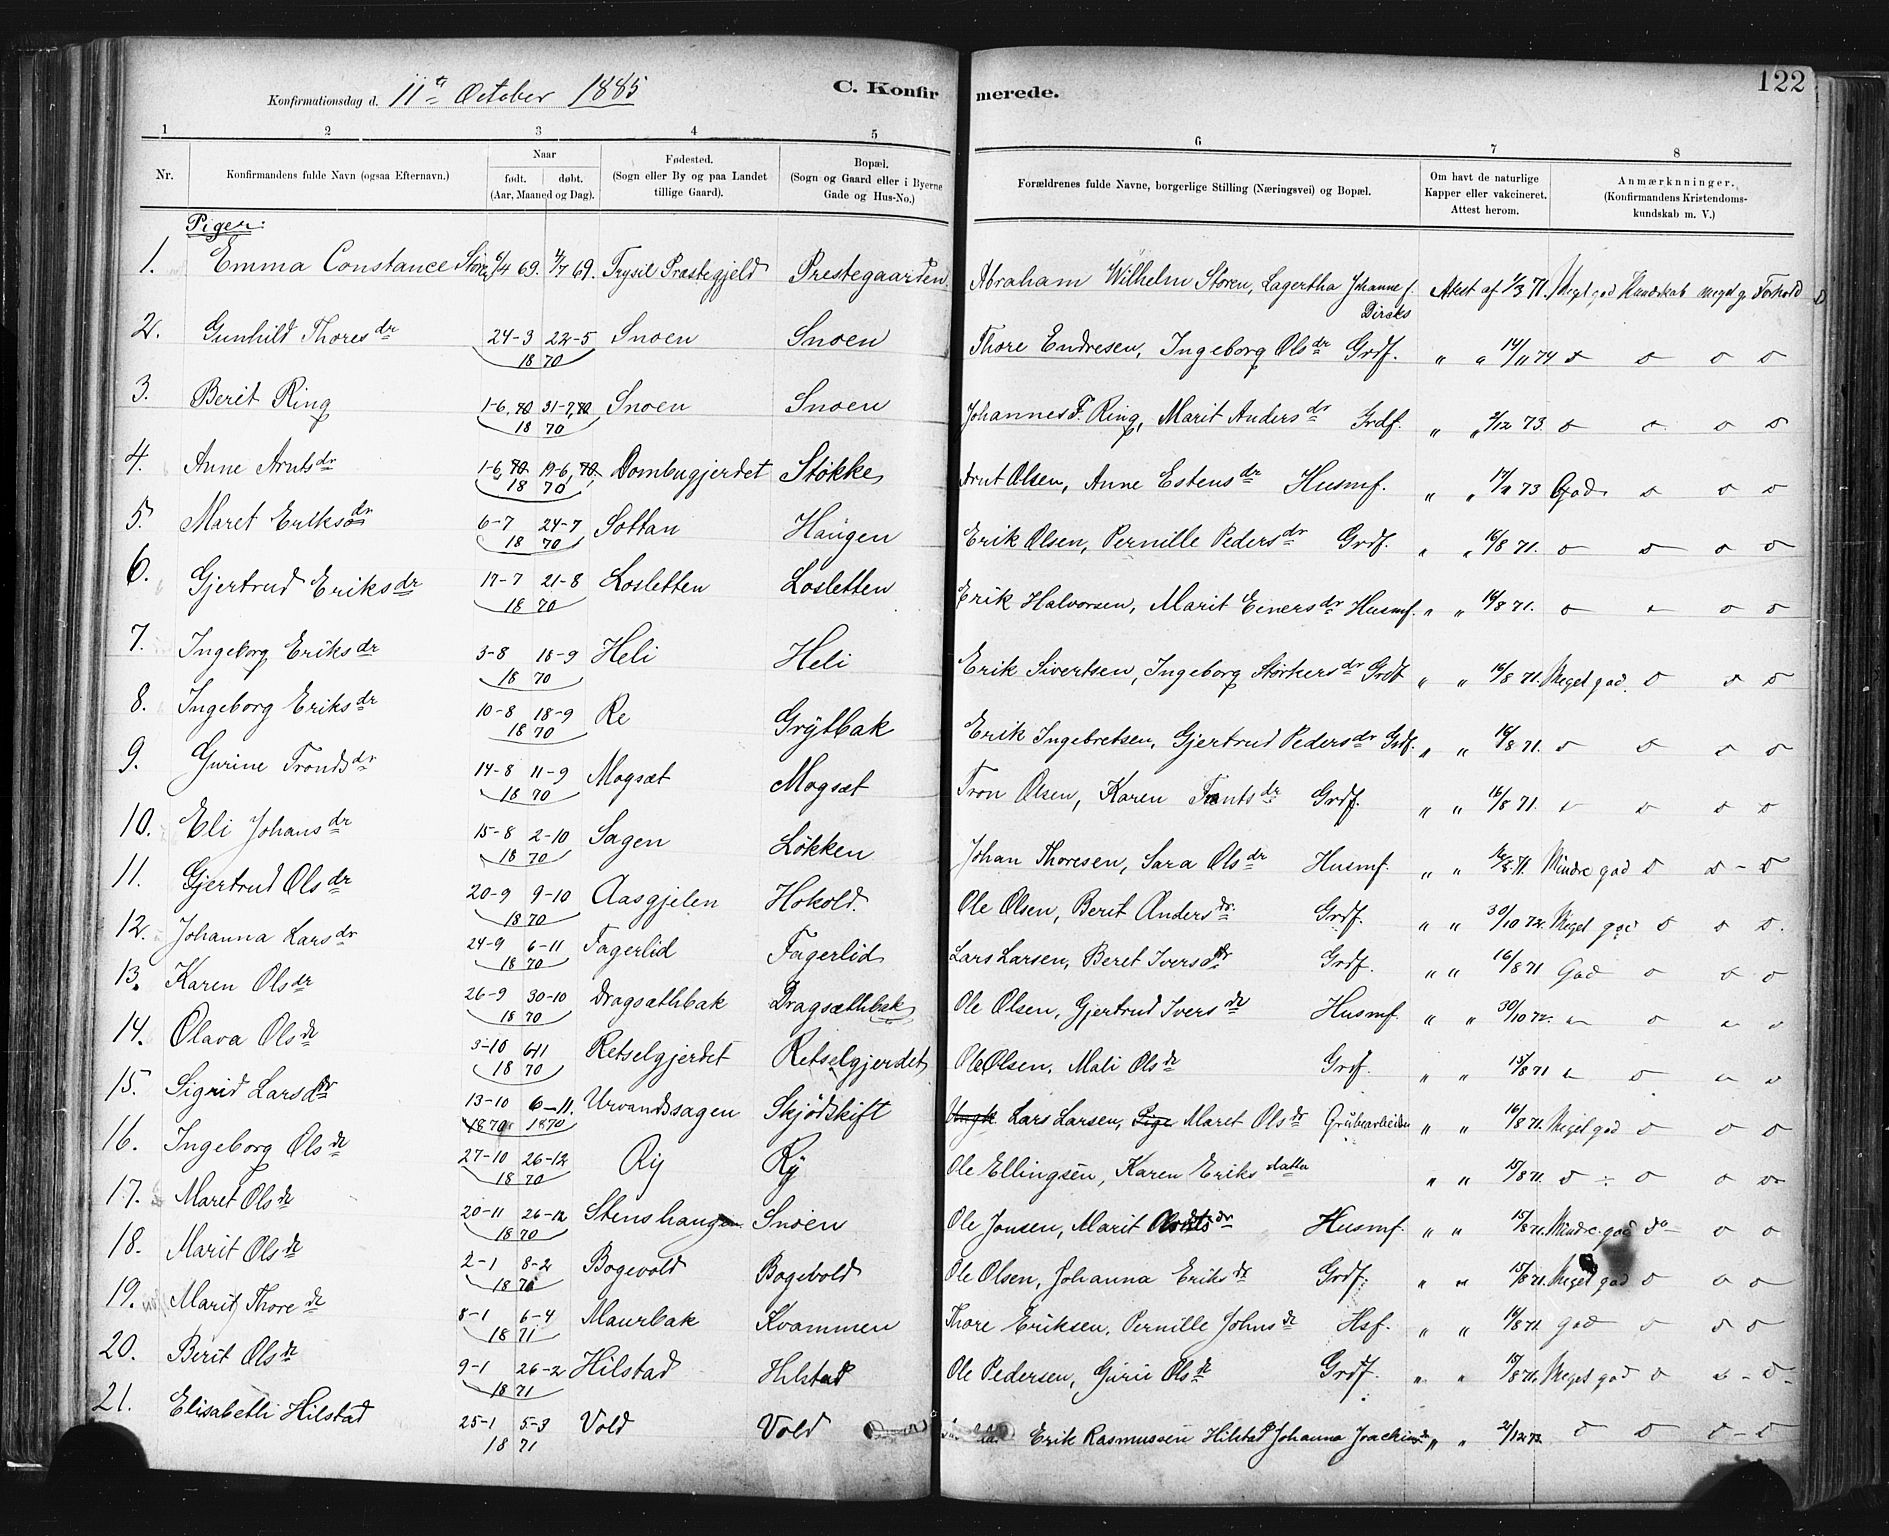 122
Konfirmationsdag d. 11te October 1885 C. Konfirmerede.
1 2 3 4 5 6 7 8
Nr. Konfirmandens fulde Navn (ogsaa Efternavn.) Naar født. døbt. (Aar, Maaned og Dag). Fødested. (Sogn eller By og paa Landet tillige Gaard). Bopæl. (Sogn og Gaard eller i Byerne Gade og Hus-No.) Forældrenes fulde Navne, borgerlige Stilling (Næringsvei) og Bopæl. Om havt de naturlige Kapper eller vakcineret. Attest herom. Anmærkninger. (Konfirmandens Kristendomskundskab m. V.)
Piger:
1. Emma Constance Støren 6/4 69. 4/7 69. Trysil Præstegjeld Prestegaarden Abraham Wilhelm Støren, Lagertha Johanne f. Dircks Attest af 1/3 71. Meget god Kundskab meget g. Forhold
2. Gunhild Thoresdr 24-3 22-5 1870 Snoen Snoen Thore Endresen, Ingeborg Olsdr Grdf. " " 14/11 74 o o o o
3. Berit Ring 1-6, 70 31-7, 70 1870 Snoen Snoen Johannes F. Ring, Marit Andersdr Grdf. " " 2/12 73 o o o o
4. Anne Arntsdr 1-6, 70 19-6, 70 1870 Dombugjerdet Støkke Arnt Olsen, Anne Estensdr Husmf. " " 73 God o o o
5. Maret Eriksdr 6-7 24-7 1870 Sottan Haugen Erik Olsen, Pernille Pedersdr Grdf. " " 16/8 71. o o o o
6. Gjertrud Eriksdr 17-7 21-8 1870 Losletten Losletten Erik Halvorsen, Marit Einersdr Husmf. " " 16/8 71. o o o o
7. Ingeborg Eriksdr 3-8 18-9 1870 Heli Heli Erik Sivertsen, Ingeborg Størkersdr Grdf " " 16/8 71. Meget god. o o o
8. Ingeborg Eriksdr 10-8 18-9 1870 Re Grýtbak Erik Ingebretsen, Gjertrud Pedersdr Grdf. " " 16/8 71. o o o o
9. Gurine Trondsdr 14-8 11-9 1870 Mogsæt Mogsæt Tron Olsen, Karen Grdf. " " 16/8 71. o o o o
10. Eli Johansdr 15-8 2-10 1870 Sagen Løkken Johan Thoresen, Sara Olsdr Husmf. " " 71. Mindre god o o - o
11. Gjertrud Olsdr 20-9 9-10 1870 Aasgjelen Hokold. Ole Olsen, Berit Andersdr. Grdf. " " 30/10 72. Meget god o o o.
12. Johanna Larsdr 24-9 6-11 1870 Fagerlid Fagerlid Lars Larsen, Beret Iversdr Grdf. " " 16/8 71 God o o o
13. Karen Olsdr 26-9 30-10 1870 Dragsæthbak Dragsæthbak Ole Olsen, Gjertrud Iversdr Husmf. " " 30/10 72. o o o o
14. Olava Olsdr 3-10 6-11 1870 Retselgjerdet Retselgjerdet Ole Olsen, Mali Olsdr Grdf. " " 15/8 71 o o o o
15. Sigrid Larsdr 13-10 6-11. 1870 1870 Urvandssagen Skjødskift Ungk. Lars Larsen, Pige Maret Olsdr Grubearbeider " " 16/8 71. Meget god o o o
16. Ingeborg Olsdr 27-10 26-12 1870 Rÿ Rÿ Ole Ellingsen, Karen Eriksdatter " " 15/8 71. o o o o
17. Maret Olsdr 20-11 26-12 1870 Stenshaugen Snoen Ole Jonsen, Marit Husmf. " " 15/8 71. Mindre god do o o
18. Marit Olsdr 2-1 8-2 1870 Bogevold Bogevold Ole Olsen, Johanna Eriksdr Grdf. " " 15/8 71. Meget god o o o
19. Marit Thoredr 8-1 6-4 1871 Maurbak Kvammen Thore Eriksen, Pernille Johnsdr Hsf. " " 71 god o o o
20. Berit Olsdr 9-1 26-2 1871 Hilstad Hilstad Ole Pedersen, Guri Olsdr Grdf. " " 15/8 71. Meget god o o - o
21. Elisabeth Hilstad 25-1 5-3 1871 Vold Vold Erik Rasmussen Hilstad Johanna " " o o o - o